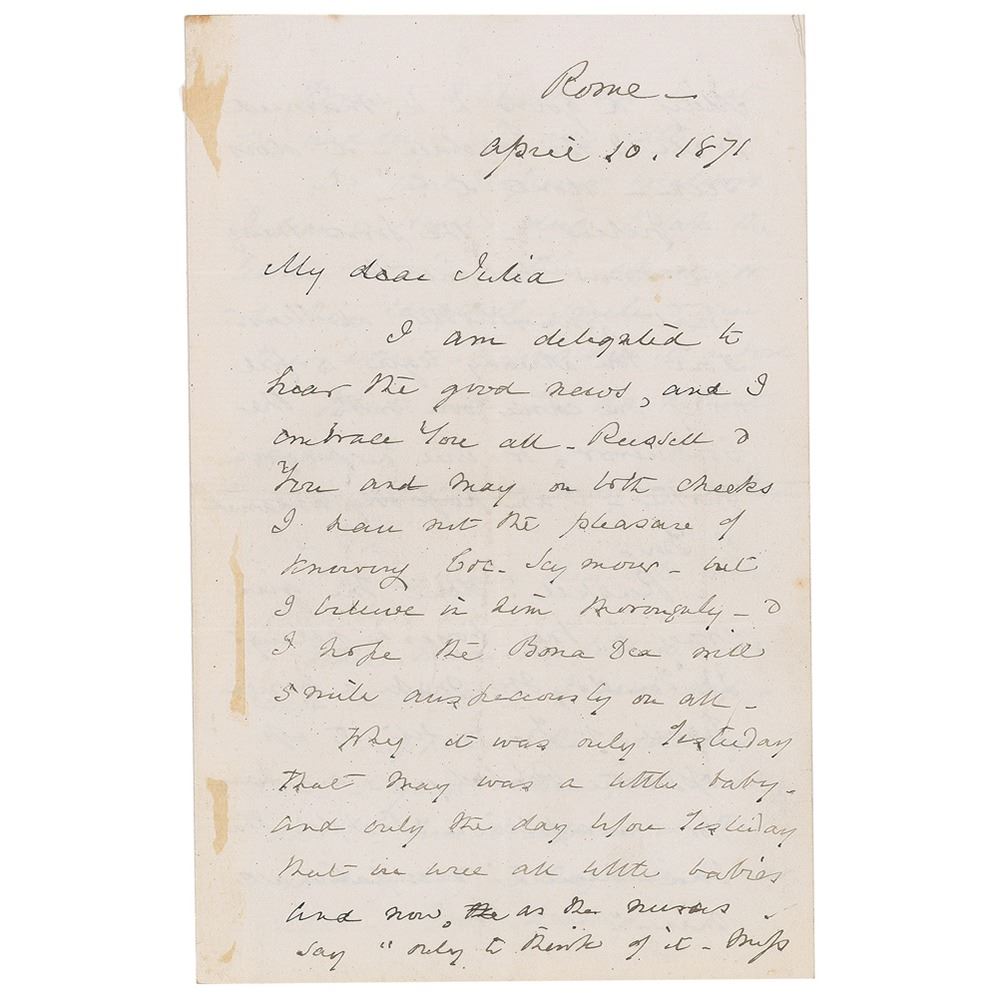 Rome —
April 10. 1871
My dear Julia
I am delighted to
hear the good news, and I
embrace you all — Russell &
You and May on both cheeks
I have not the pleasure of
knowing Col. Seymour — but
I believe in him thoroughly — &
I hope the Bona Dea will
smile auspiciously on all —
Why it was only Yesterday
that May was a little baby —
and only the day before Yesterday
that we were all little babies
and now, as the nurses
say "only to think of it — Miss